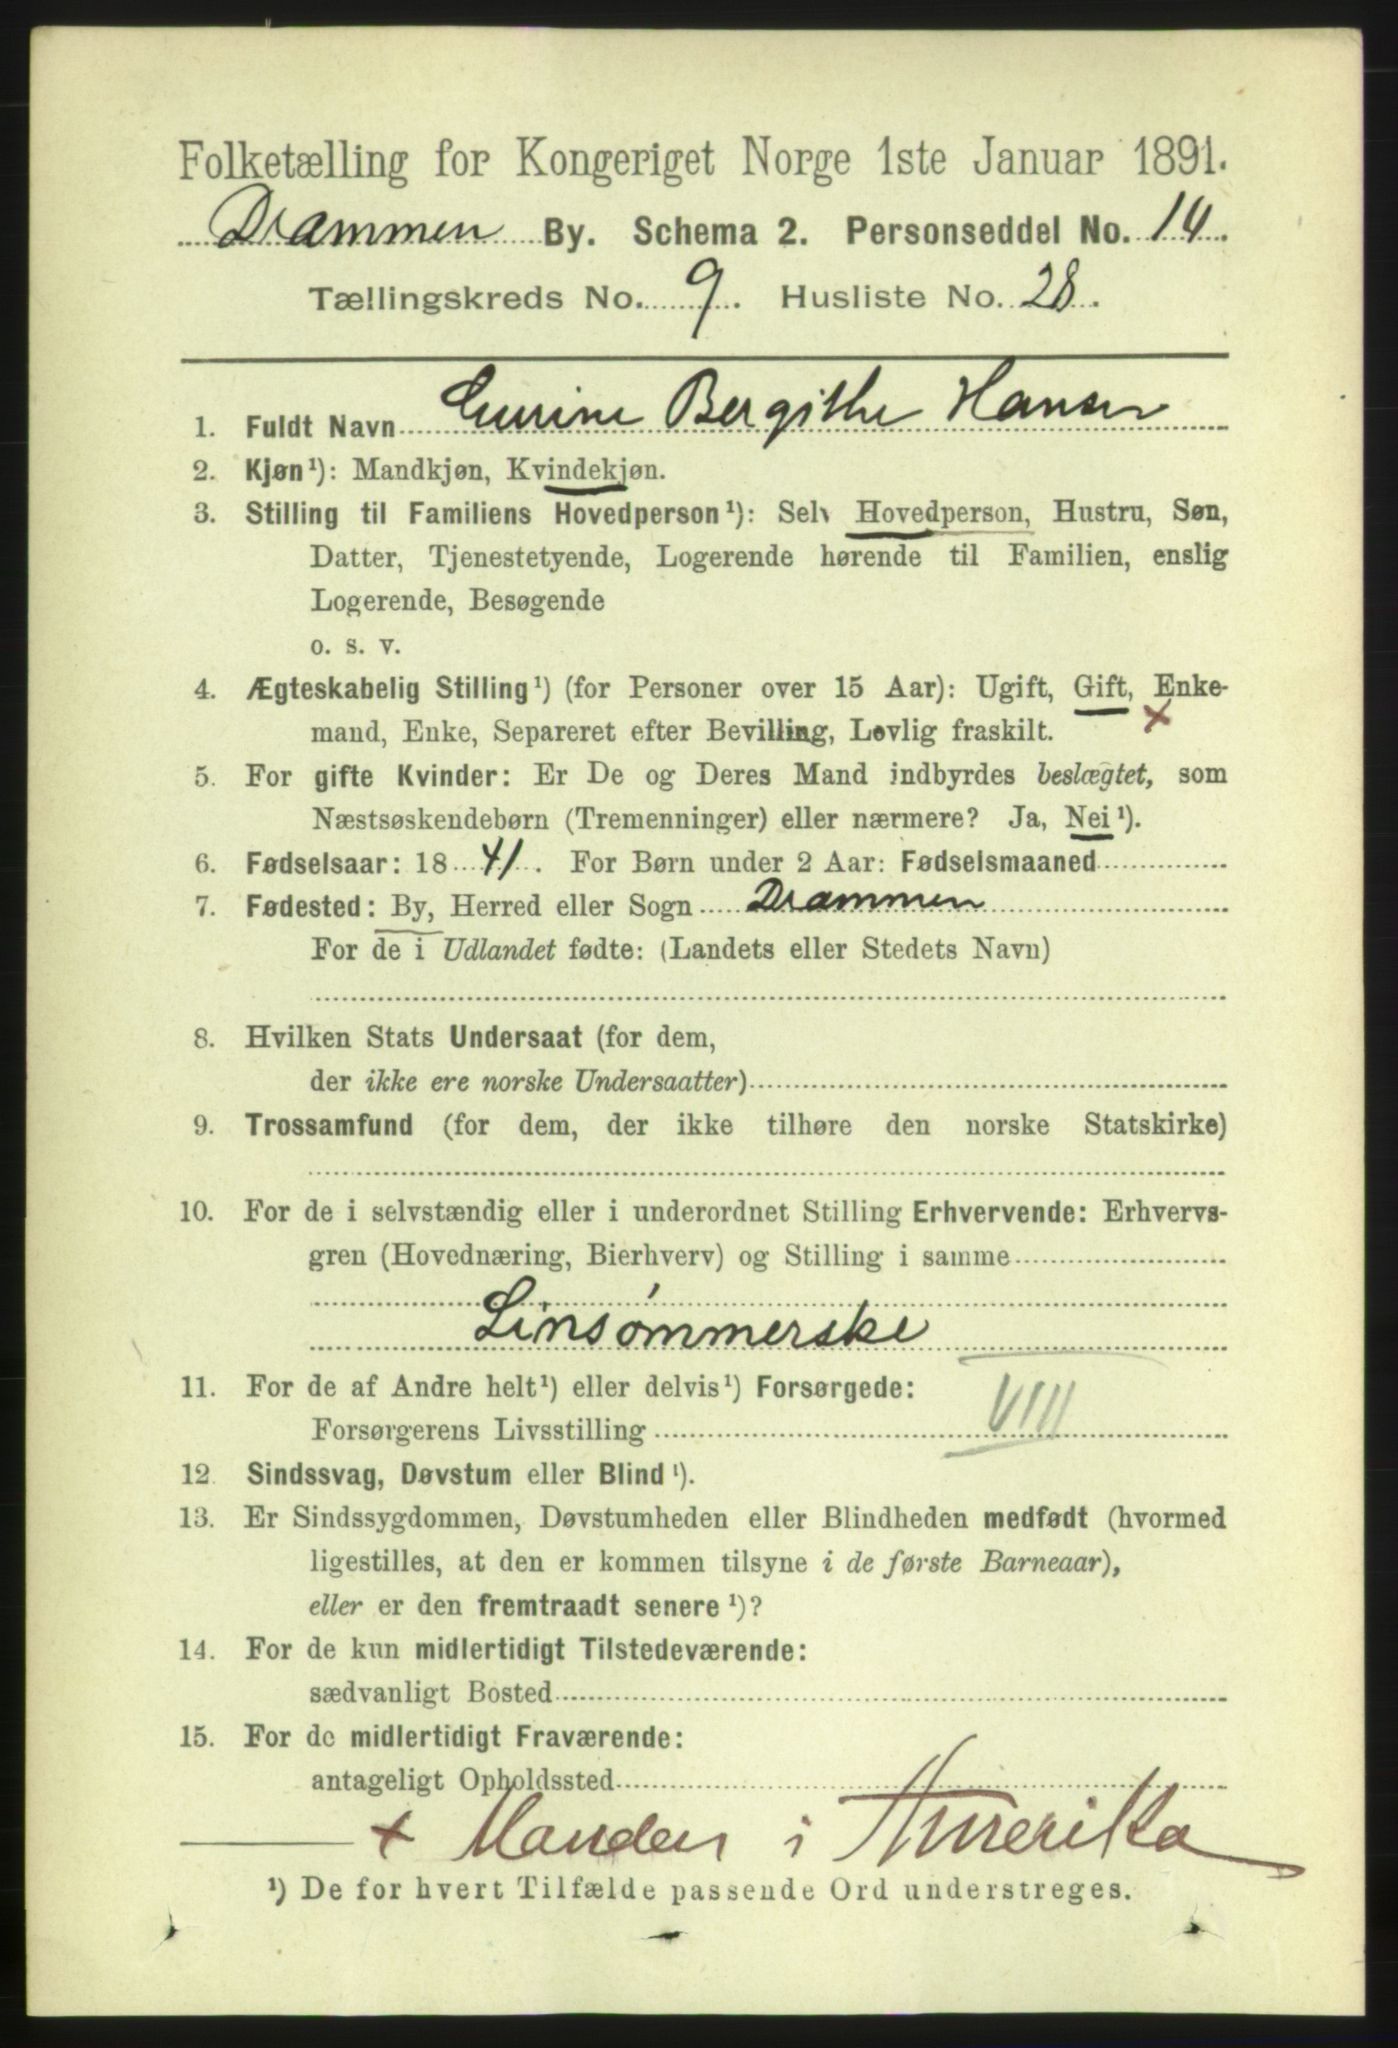 Folketælling for Kongeriget Norge 1ste Januar 1891.
Drammen By. Schema 2. Personseddel No. 14.
Tællingskreds No. 9. Husliste No. 28.
1. Fuldt Navn Bergithe Hansen
2. Kjøn¹): Mandkjøn, Kvindekjøn.
3. Stilling til Familiens Hovedperson¹): Selv Hovedperson, Hustru, Søn,
Datter, Tjenestetyende, Logerende hørende til Familien, enslig
Logerende, Besøgende
o. s. v.
4. Ægteskabelig Stilling¹) (for Personer over 15 Aar): Ugift, Gift, Enke-
mand, Enke, Separeret efter Bevilling, Lovlig fraskilt. ×
5. For gifte Kvinder: Er De og Deres Mand indbyrdes beslægtet, som
Næstsøskendebørn (Tremenninger) eller nærmere? Ja, Nei¹).
6. Fødselsaar: 1841. For Børn under 2 Aar: Fødselsmaaned
7. Fødested: By, Herred eller Sogn Drammen
For de i Udlandet fødte: (Landets eller Stedets Navn)
8. Hvilken Stats Undersaat (for dem,
der ikke ere norske Undersaatter)
9. Trossamfund (for dem, der ikke tilhøre den norske Statskirke)
10. For de i selvstændig eller i underordnet Stilling Erhvervende: Erhvervs-
gren (Hovednæring, Bierhverv) og Stilling i samme
Linsømmerske
11. For de af Andre helt¹) eller delvis¹) Forsørgede:
Forsørgerens Livsstilling VIII
12 Sindssvag, Døvstum eller Blind¹).
13. Er Sindssygdommen, Døvstumheden eller Blindheden medfødt (hvormed
ligestilles, at den er kommen tilsyne i de første Barneaar),
eller er den fremtraadt senere¹)?
14. For de kun midlertidigt Tilstedeværende:
sædvanligt Bosted
15. For de midlertidigt Fraværende:
antageligt Opholdssted
× Manden i Amerika
¹) De for hvert Tilfælde passende Ord understreges.